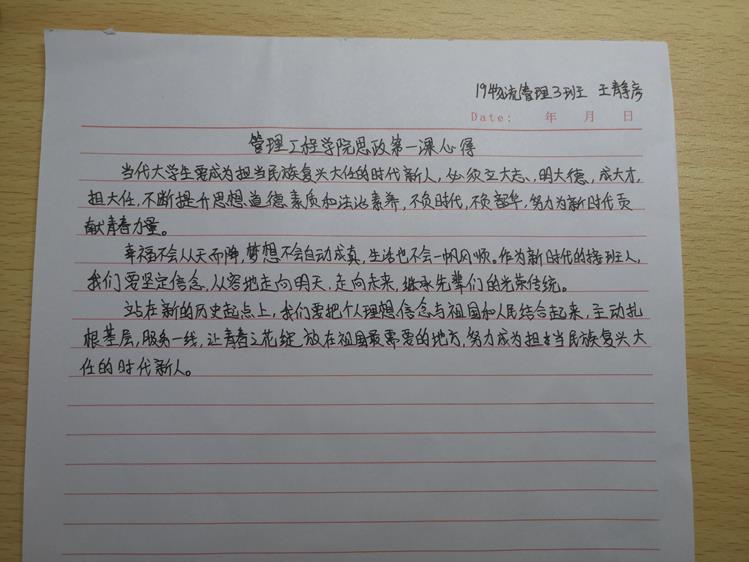 19物流管理3班 王静彦
Date: 年 月 日
管理工程学院思政第一课心得
当代大学生要成为担当民族复兴大任的时代新人,必须立大志,明大德,成大才,
担大任,不断提升思想道德素质和法治素养,不负时代,不负韶华,努力为新时代贡
献青春力量。
幸福不会从天而降,梦想不会自动成真,生活也不会一帆风顺。作为新时代的接班人,
我们要坚定信念,从容地走向明天,走向未来,继承先辈们的光荣传统。
站在新的历史起点上,我们要把个人理想信念与祖国和人民结合起来,主动扎
根基层,服务一线,让青春之花绽放在祖国最需要的地方,努力成为担当民族复兴大
任的时代新人。